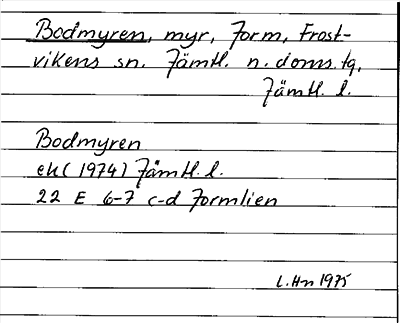 Bodmyren, myr, Form, Frost-
vikens sn. Jämtl. n. doms. tg,
Jämtl. l.
Bodmyren
ek (1974) Jämtl. l.
22 E 6-7 c-d Jormlien
L. Hn 1975